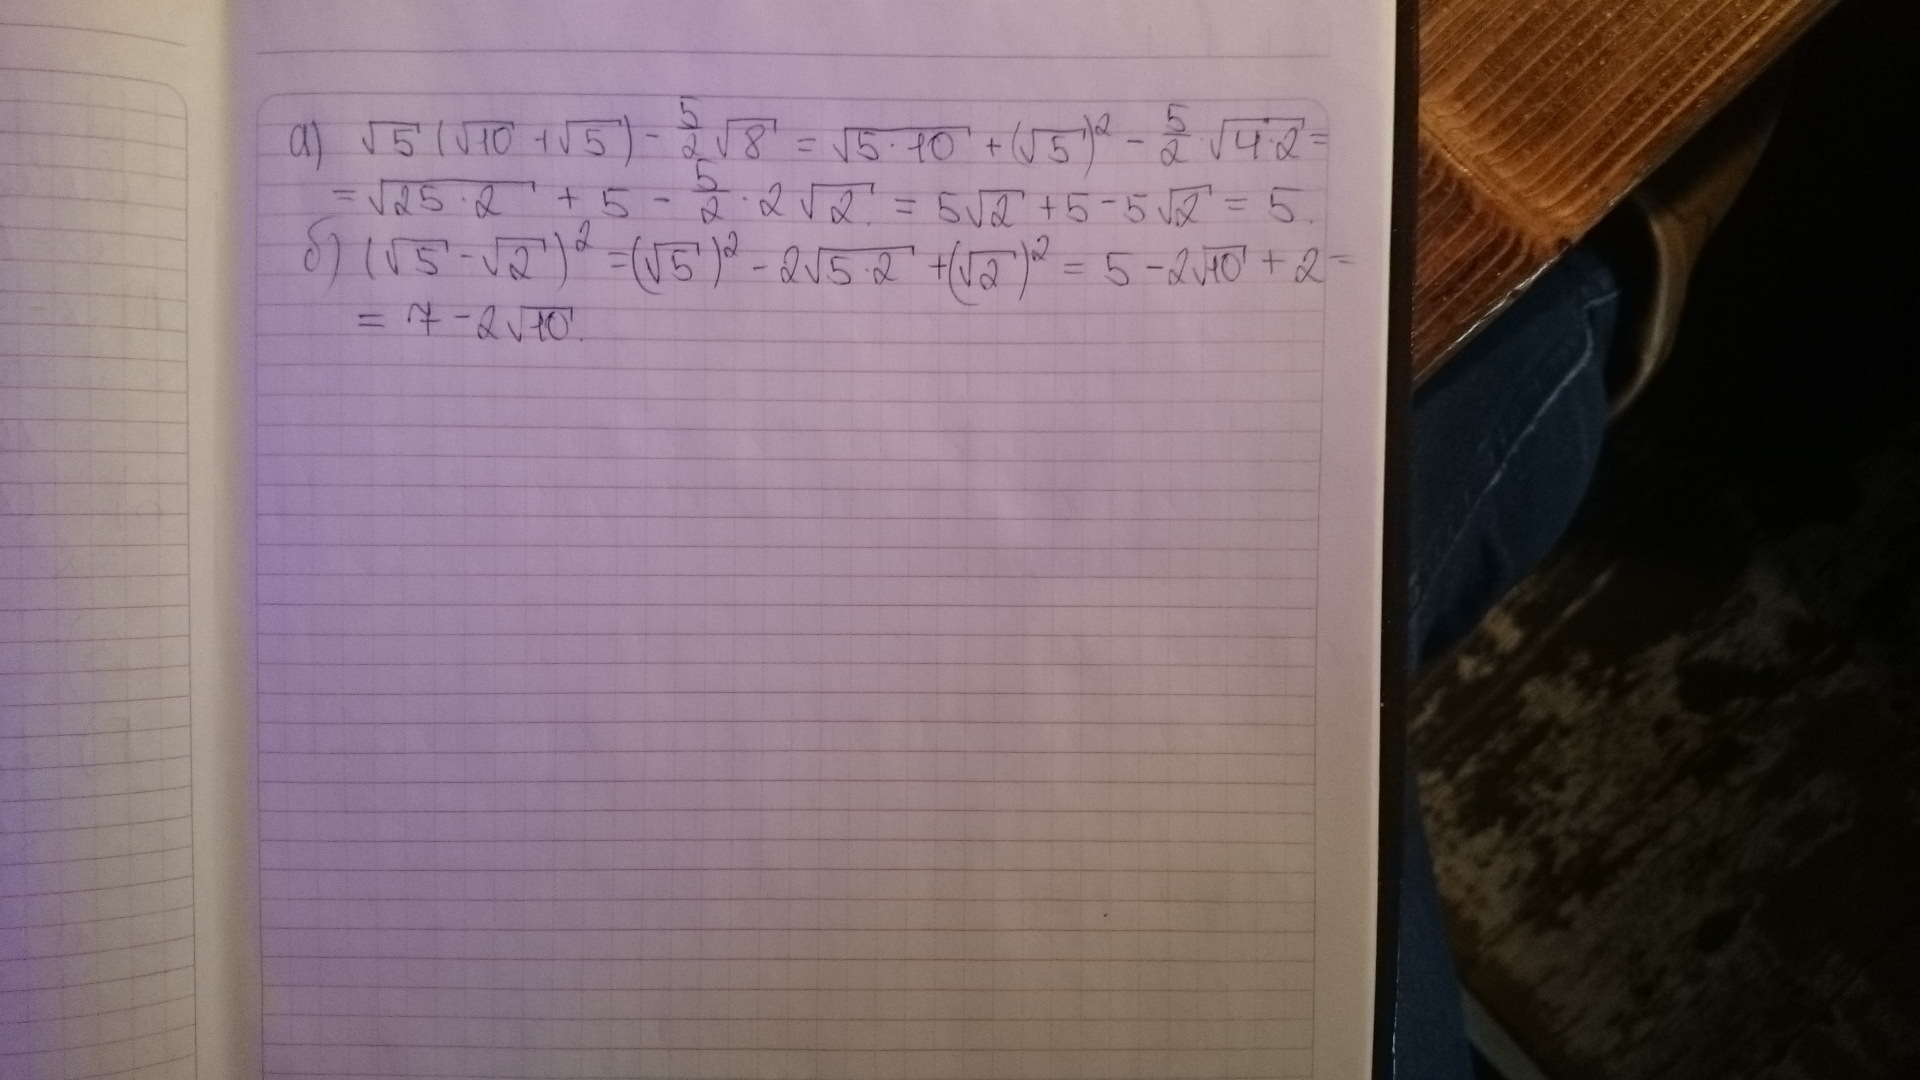 а) √5(√10 + √5) - 5/2 √8 = √5·10 + (√5)² - 5/2 · √4·2 =
= √25·2 + 5 - 5/2 · 2√2 = 5√2 + 5 - 5√2 = 5.
б) (√5 - √2)² = (√5)² - 2√5·2 + (√2)² = 5 - 2√10 + 2 =
= 7 - 2√10.